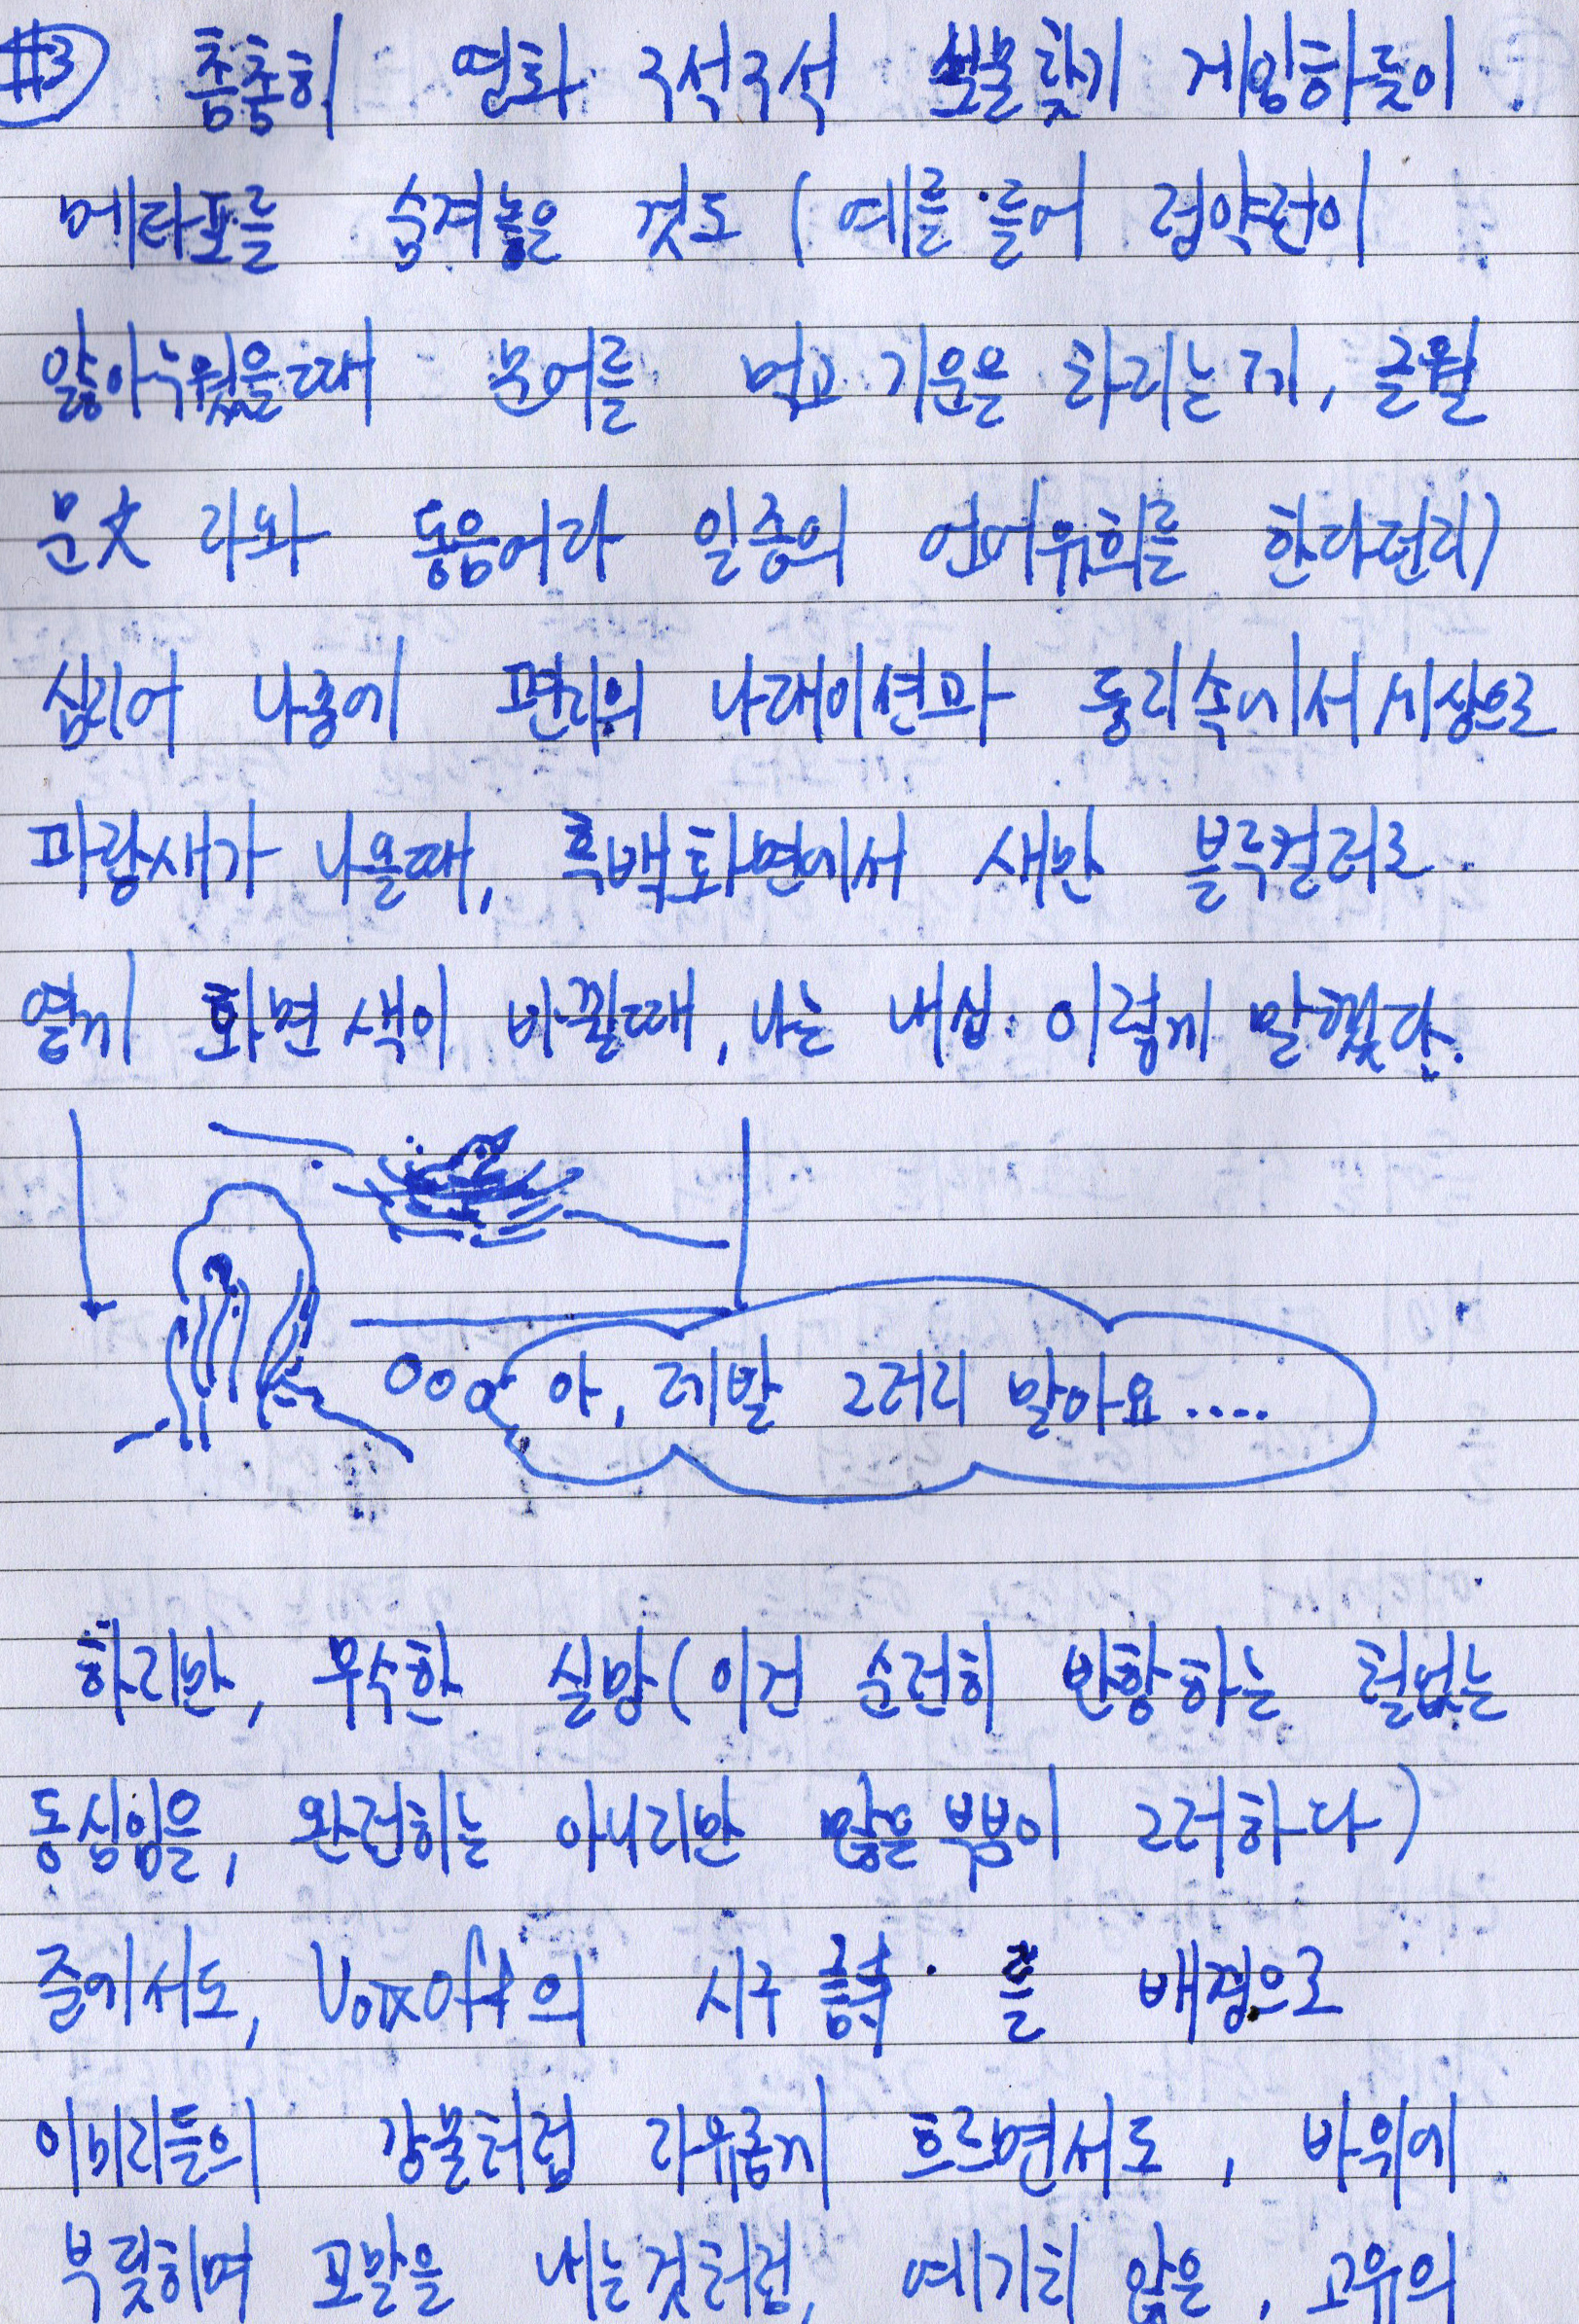 #3 촘촘히 영화 구석구석 보물찾기 게임하듯이
메타포를 숨겨놓은 것도 (예를 들어 정약전이
앓아누웠을때 문어를 먹고 기운을 차리는게, 글월
문文 자와 동음어라 일종의 언어유희를 한다던지)
심지어 나중에 편지의 나래이션과 둥지속에서 세상으로
파랑새가 나올때, 흑백화면에서 새만 블루컬러로
옅게 화면 색이 바뀔때, 나는 내심 이렇게 말했다.
아, 제발 그러지 말아요....
하지만, 무수한 실망(이건 순전히 반항하는 철없는
동심임을, 완전히는 아니지만 많은 부분이 그러하다)
중에서도, 의 시구 를 배경으로
이미지들의 강물처럼 자유롭게 흐르면서도, 바위에
부딪히며 포말을 내는것처럼, 예기치 않은, 고유의